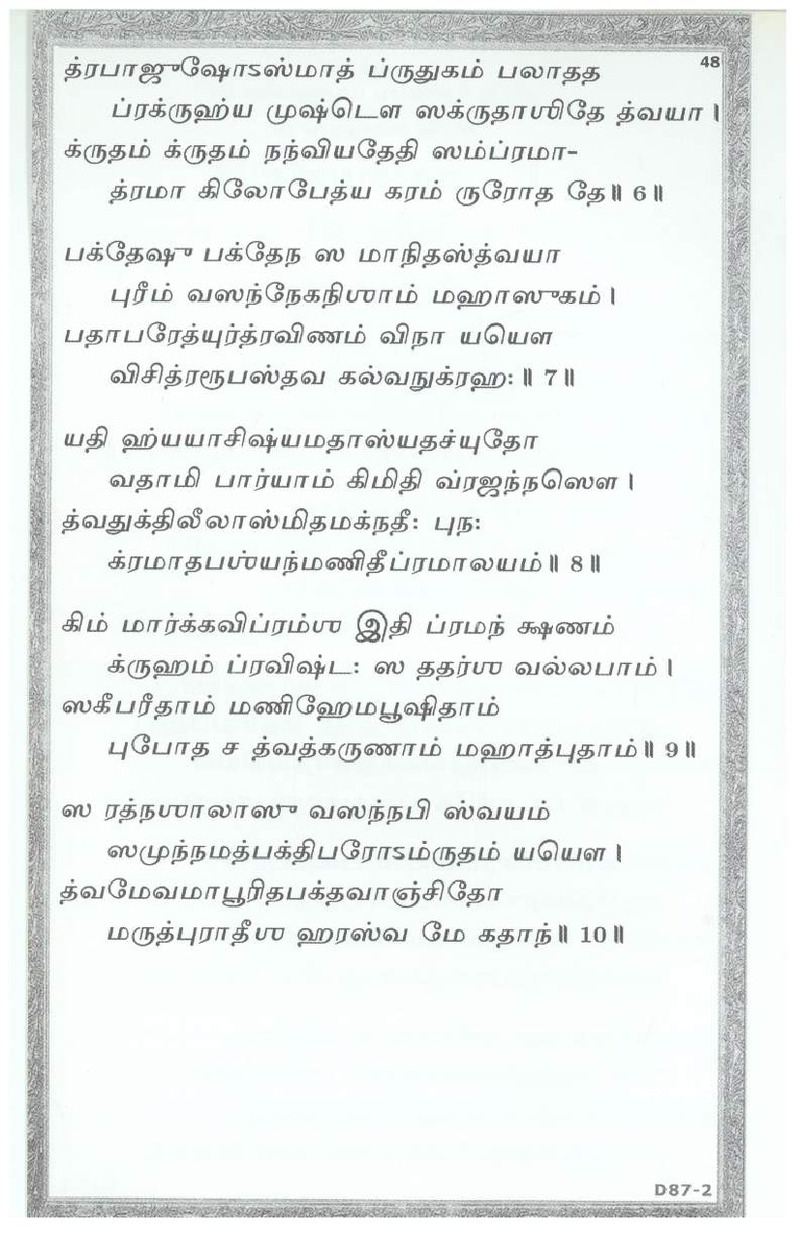 48
த்ரபாஜுஷோঽஸ்மாத் ப்ருதுகம் பலாதத
ப்ரக்ருஹ்ய முஷ்டௌ ஸக்ருதாஶிதே த்வயா ।
க்ருதம் க்ருதம் நந்வியதேதி ஸம்ப்ரமா-
த்ரமா கிலோபேத்ய கரம் ருரோத தே॥ 6॥
பக்தேஷு பக்தேந ஸ மாநிதஸ்த்வயா
புரீம் வஸந்நேகநிஶாம் மஹாஸுகம் ।
பதாபரேத்யுர்த்ரவிணம் விநா யயௌ
விசித்ரரூபஸ்தவ கல்வநுக்ரஹ: ॥ 7॥
யதி ஹ்யயாசிஷ்யமதாஸ்யதச்யுதோ
வதாமி பார்யாம் கிமிதி வ்ரஜந்நஸௌ ।
த்வதுக்திலீலாஸ்மிதமக்நதீ: புந:
க்ரமாதபஶ்யந்மணிதீப்ரமாலயம்॥ 8॥
கிம் மார்க்கவிப்ரம்ஶ இதி ப்ரமந் க்ஷணம்
க்ருஹம் ப்ரவிஷ்ட: ஸ ததர்ஶ வல்லபாம் ।
ஸகீபரீதாம் மணிஹேமபூஷிதாம்
புபோத ச த்வத்கருணாம் மஹாத்புதாம்॥ 9॥
ஸ ரத்நஶாலாஸு வஸந்நபி ஸ்வயம்
ஸமுந்நமத்பக்திபரோঽம்ருதம் யயௌ ।
த்வமேவமாபூரிதபக்தவாஞ்சிதோ
மருத்புராதீஶ ஹரஸ்வ மே கதாந்॥ 10॥
D87-2